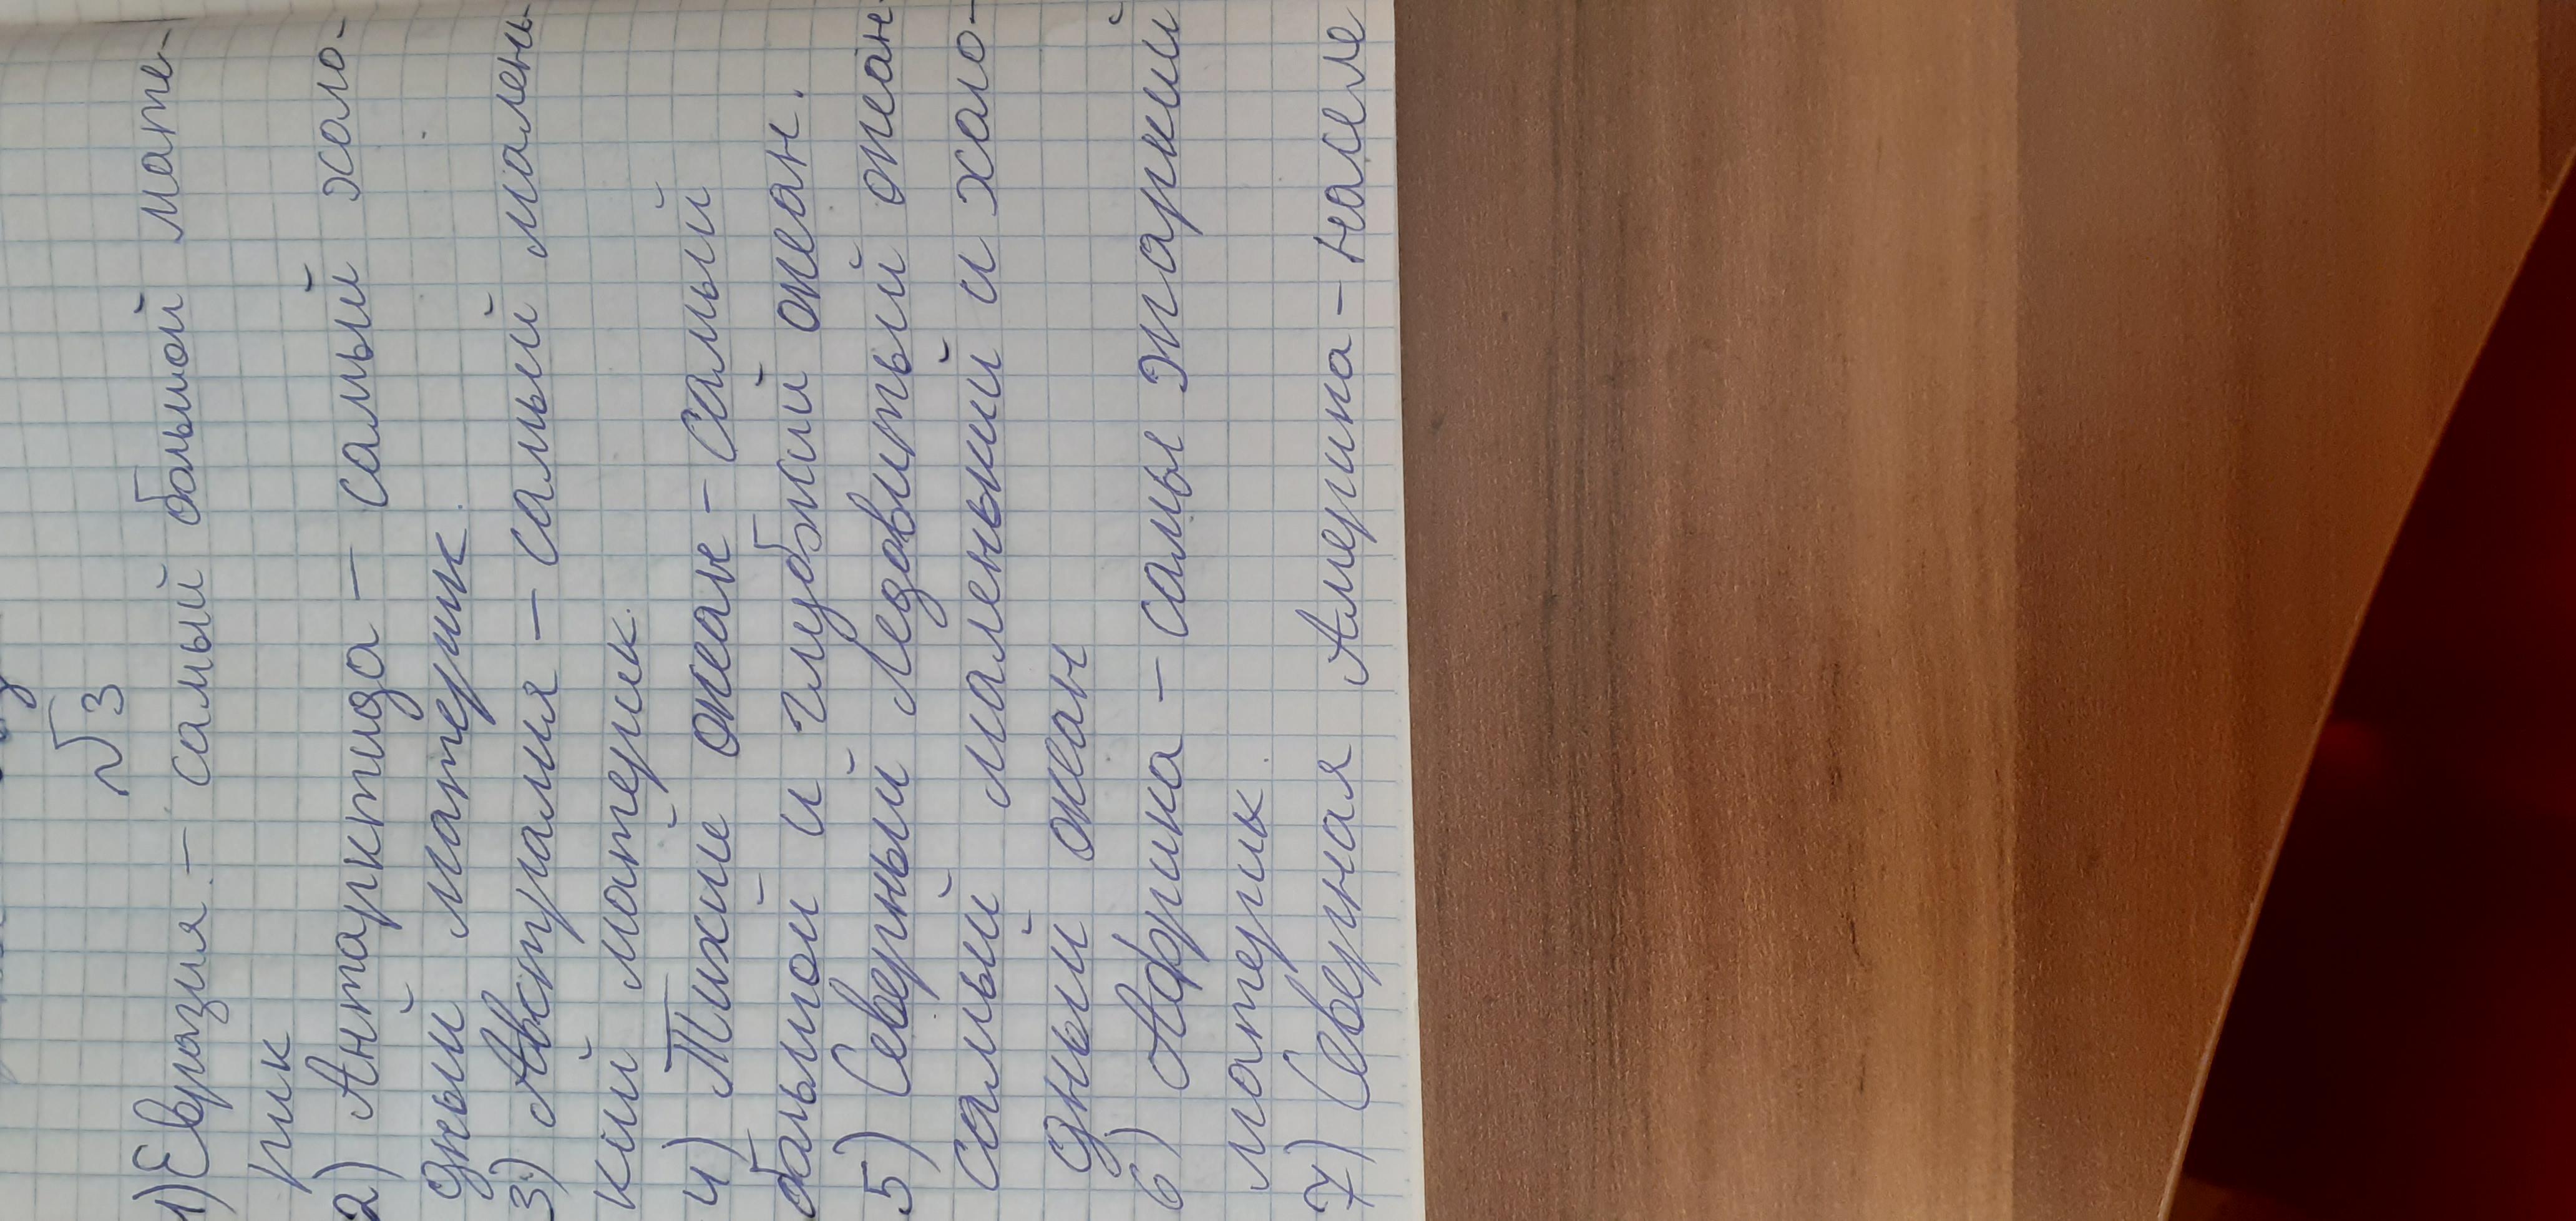 №3
1) Евразия - самый большой мате-
рик
2) Антарктида - самый холо-
дный материк.
3) Австралия - самый малень-
кий материк.
4) Тихий океан - самый
большой и глубкий океан.
5) Северный Ледовитый океан
самый маленький и холо-
дный океан
6) Африка - самы жаркий
материк
7) Северная Америка - населе